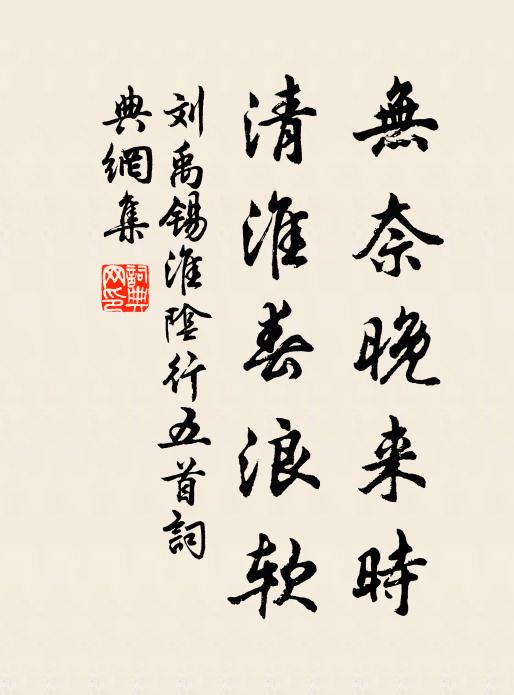 無奈晚来時
清淮春浪软
刘禹锡淮陰行五首詞
典網集
詞典
网印